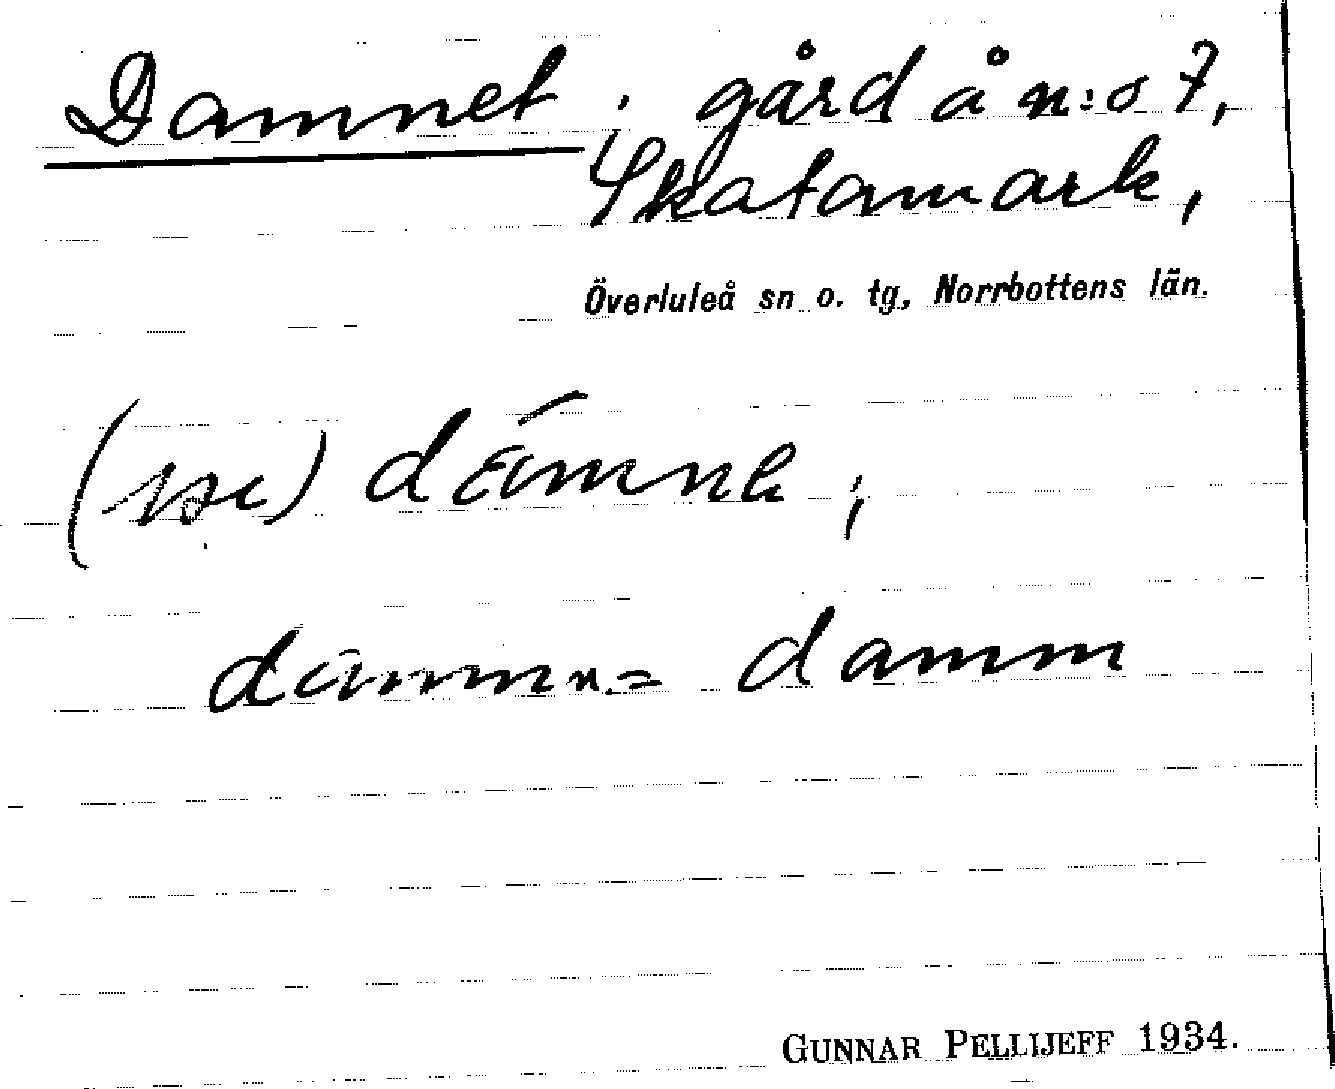 Damnet, gård å n:o 7,
Skatamark,
Överluleå sn o. tg, Norrbottens län.
damm
GUNNAR PELLIJEFF 1934.